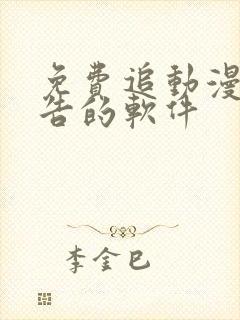 免費追動漫
告的軟件
李金巳